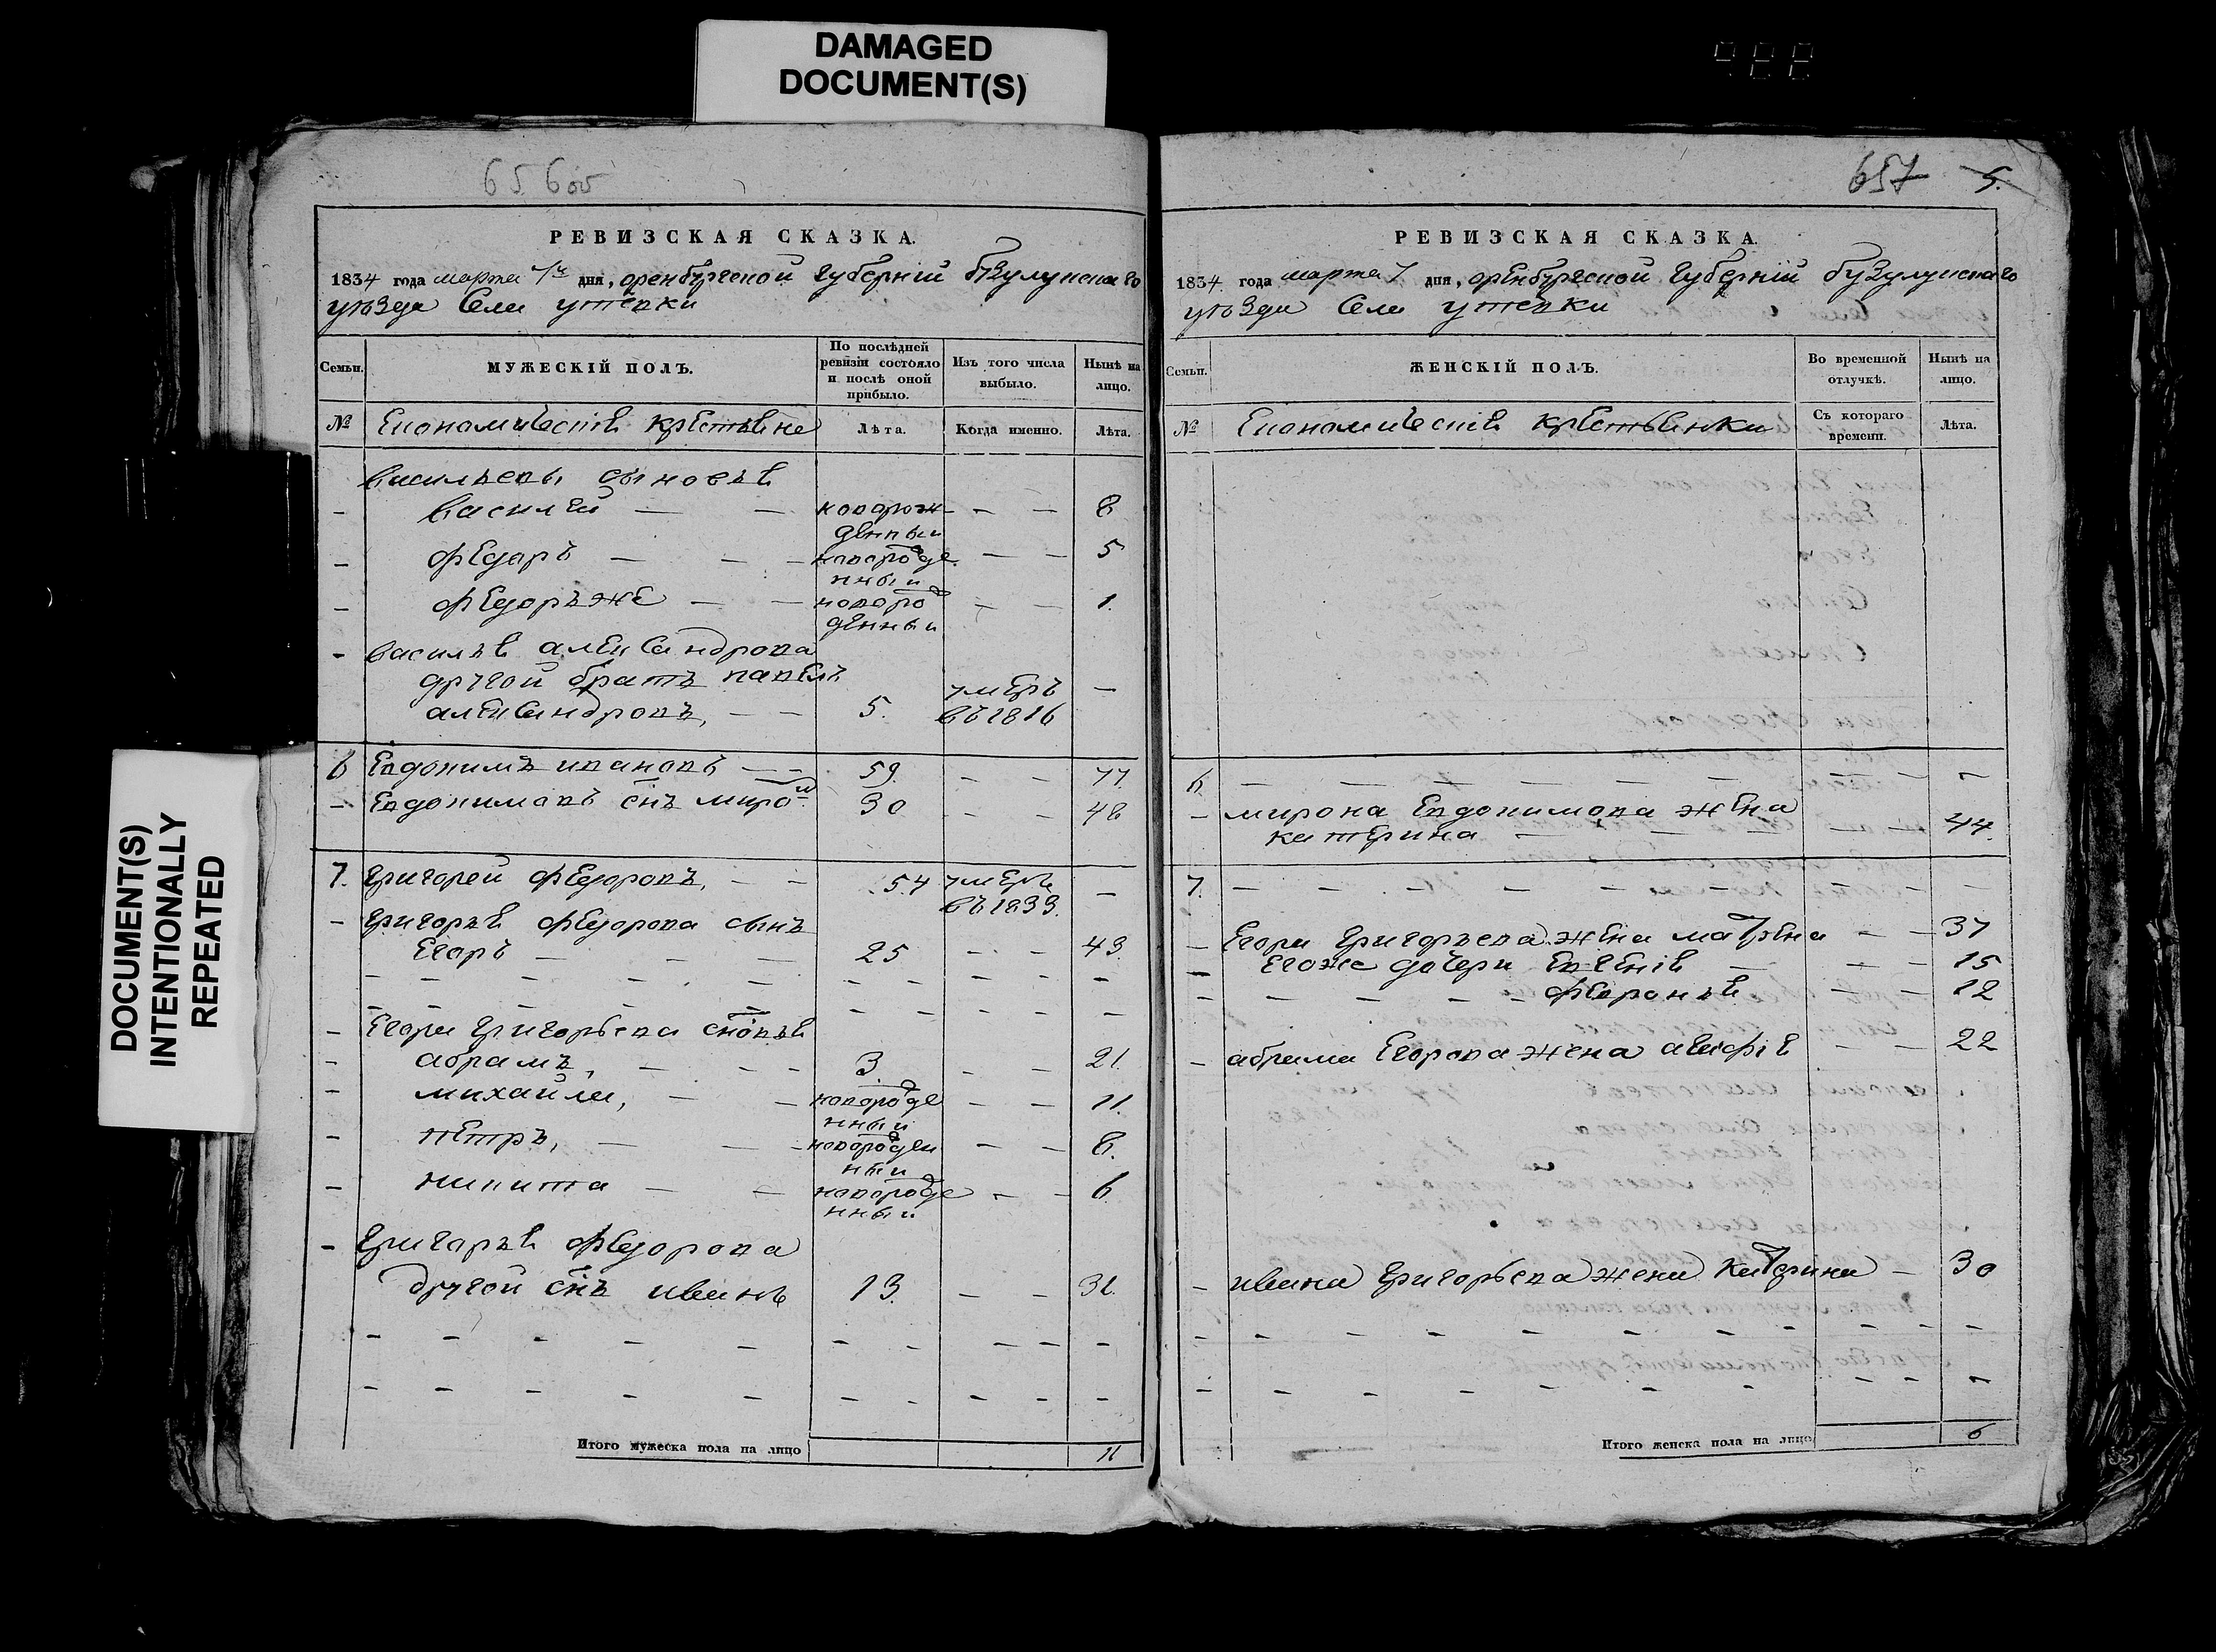 DAMAGED
DOCUMENT(S)
DOCUMENT(S)
INTENTIONALLY
REPEATED
656об
РЕВИЗСКАЯ СКАЗКА.
1834 года марта 7го дня, оренбургской губернiи бузулукскаго
уѣзда села утевки
Семьи.
МУЖЕСКІЙ ПОЛЪ.
По послѣдней ревизіи состояло и послѣ оной прибыло.
Изъ того числа выбыло.
Нынѣ на лицо.
№ Економическiя крестьяне
Лѣта. Когда именно. Лѣта.
васильевы сыновья
- василей — — новорож- — — 8
денный
- федоръ — — — новорожде — — 5
нный
- федоръ же — — новорож — — 1.
денный
- василья александрова
другой братъ павелъ
умеръ —
александровъ, — — 5. въ 1816
6 Евдокимъ ивановъ — — 59. — — 77.
- Евдокимовъ снъ миронъ 30 — — 48
7. григорей федоровъ, — — 54 умеръ —
въ 1833.
- григорья федорова сынъ
Егоръ — — — 25 — — 43.
- Егора григорьева сновья
- абрамъ, — — — 3. — — 21.
- михайла, — — новорожде — — 11.
нный
- петръ, — — новорожден — — 8.
ный
- никита — — новорожде — — 6.
нный
- григорья федорова
другой снъ иванъ 13. — — 31.
Итого мужеска пола на лицо 11
657 5.
РЕВИЗСКАЯ СКАЗКА.
1834 года марта 7 дня, оренбургской губернiи бузулукскаго
уѣзда села утевки
Семьи.
ЖЕНСКІЙ ПОЛЪ.
Во временной отлучкѣ.
Нынѣ на лицо.
№ Економическiя крестьянки
Съ котораго времени. Лѣта.
6. — — — — — — — — —
- мирона Евдокимова жена
катерина — — — — — 44.
7. — — — — — — — — —
- Егора григорьева жена матрена — — 37
- Егоже дочери Евгенiя — — — 15
- — — — — февронья — — 12
- абрама Егорова жена агафiя — — 22
- ивана григорьева жена катерина — 30
Итого женска пола на лицо 6